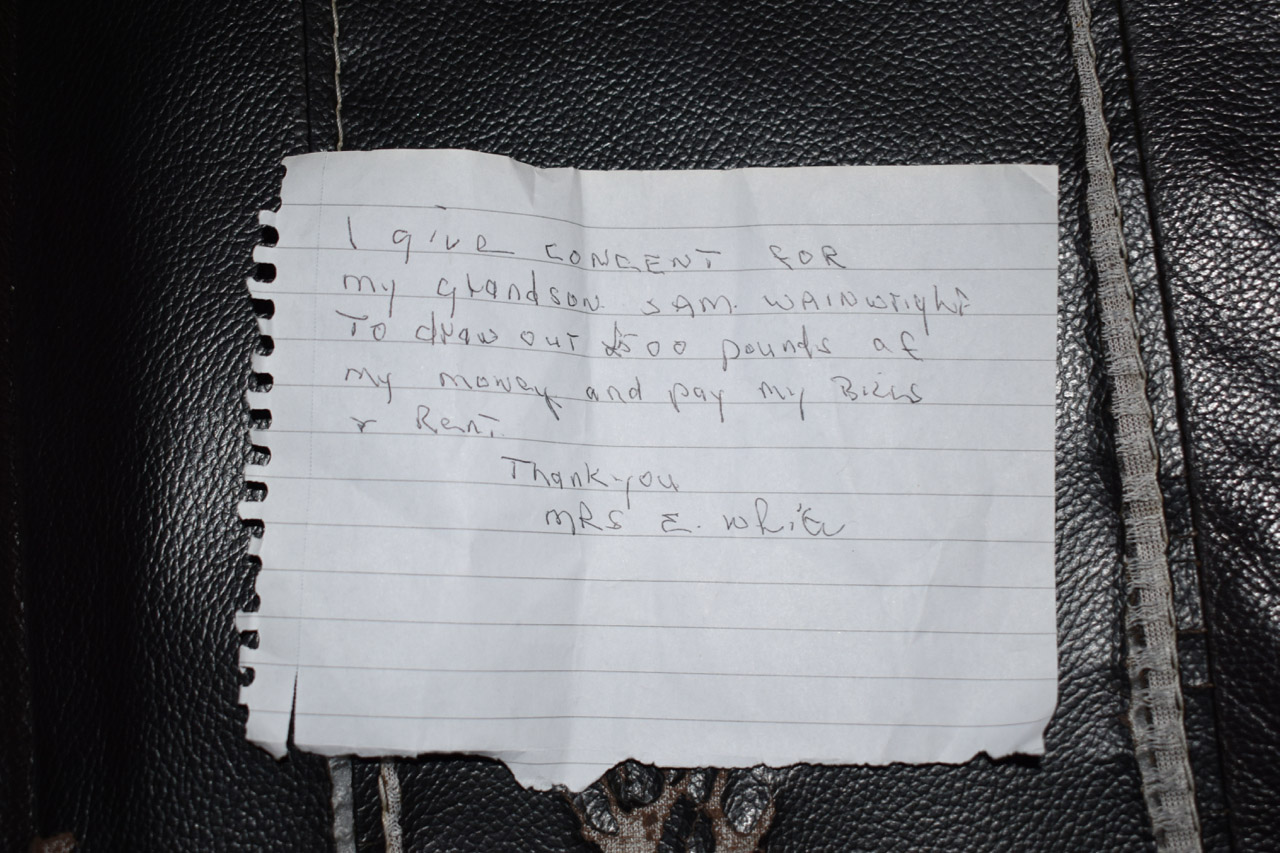 I give CONCENT FOR
my grandson SAM. WAINWright
To draw out £500 pounds of
my money and pay my Bills
& Rent.
Thankyou
MRS E. White